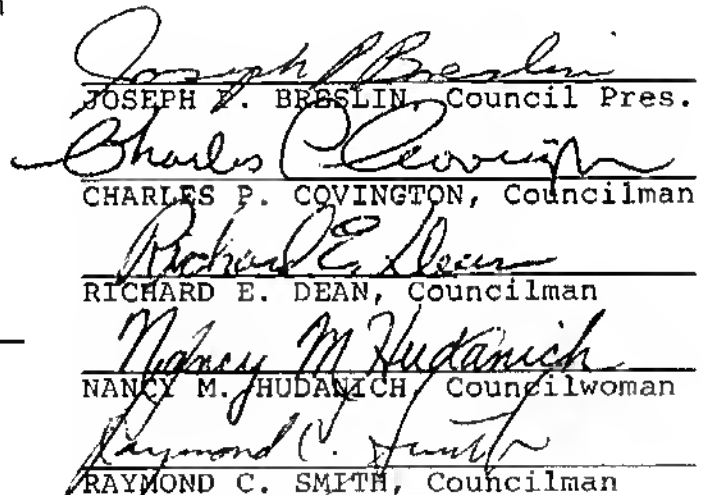 Joseph P. Breslin
JOSEPH P. BRESLIN, Council Pres.
Charles P. Covington
CHARLES P. COVINGTON, Councilman
Richard E. Dean
RICHARD E. DEAN, Councilman
Nancy M Hudanich
NANCY M. HUDANICH, Councilwoman
Raymond C. Smith
RAYMOND C. SMITH, Councilman